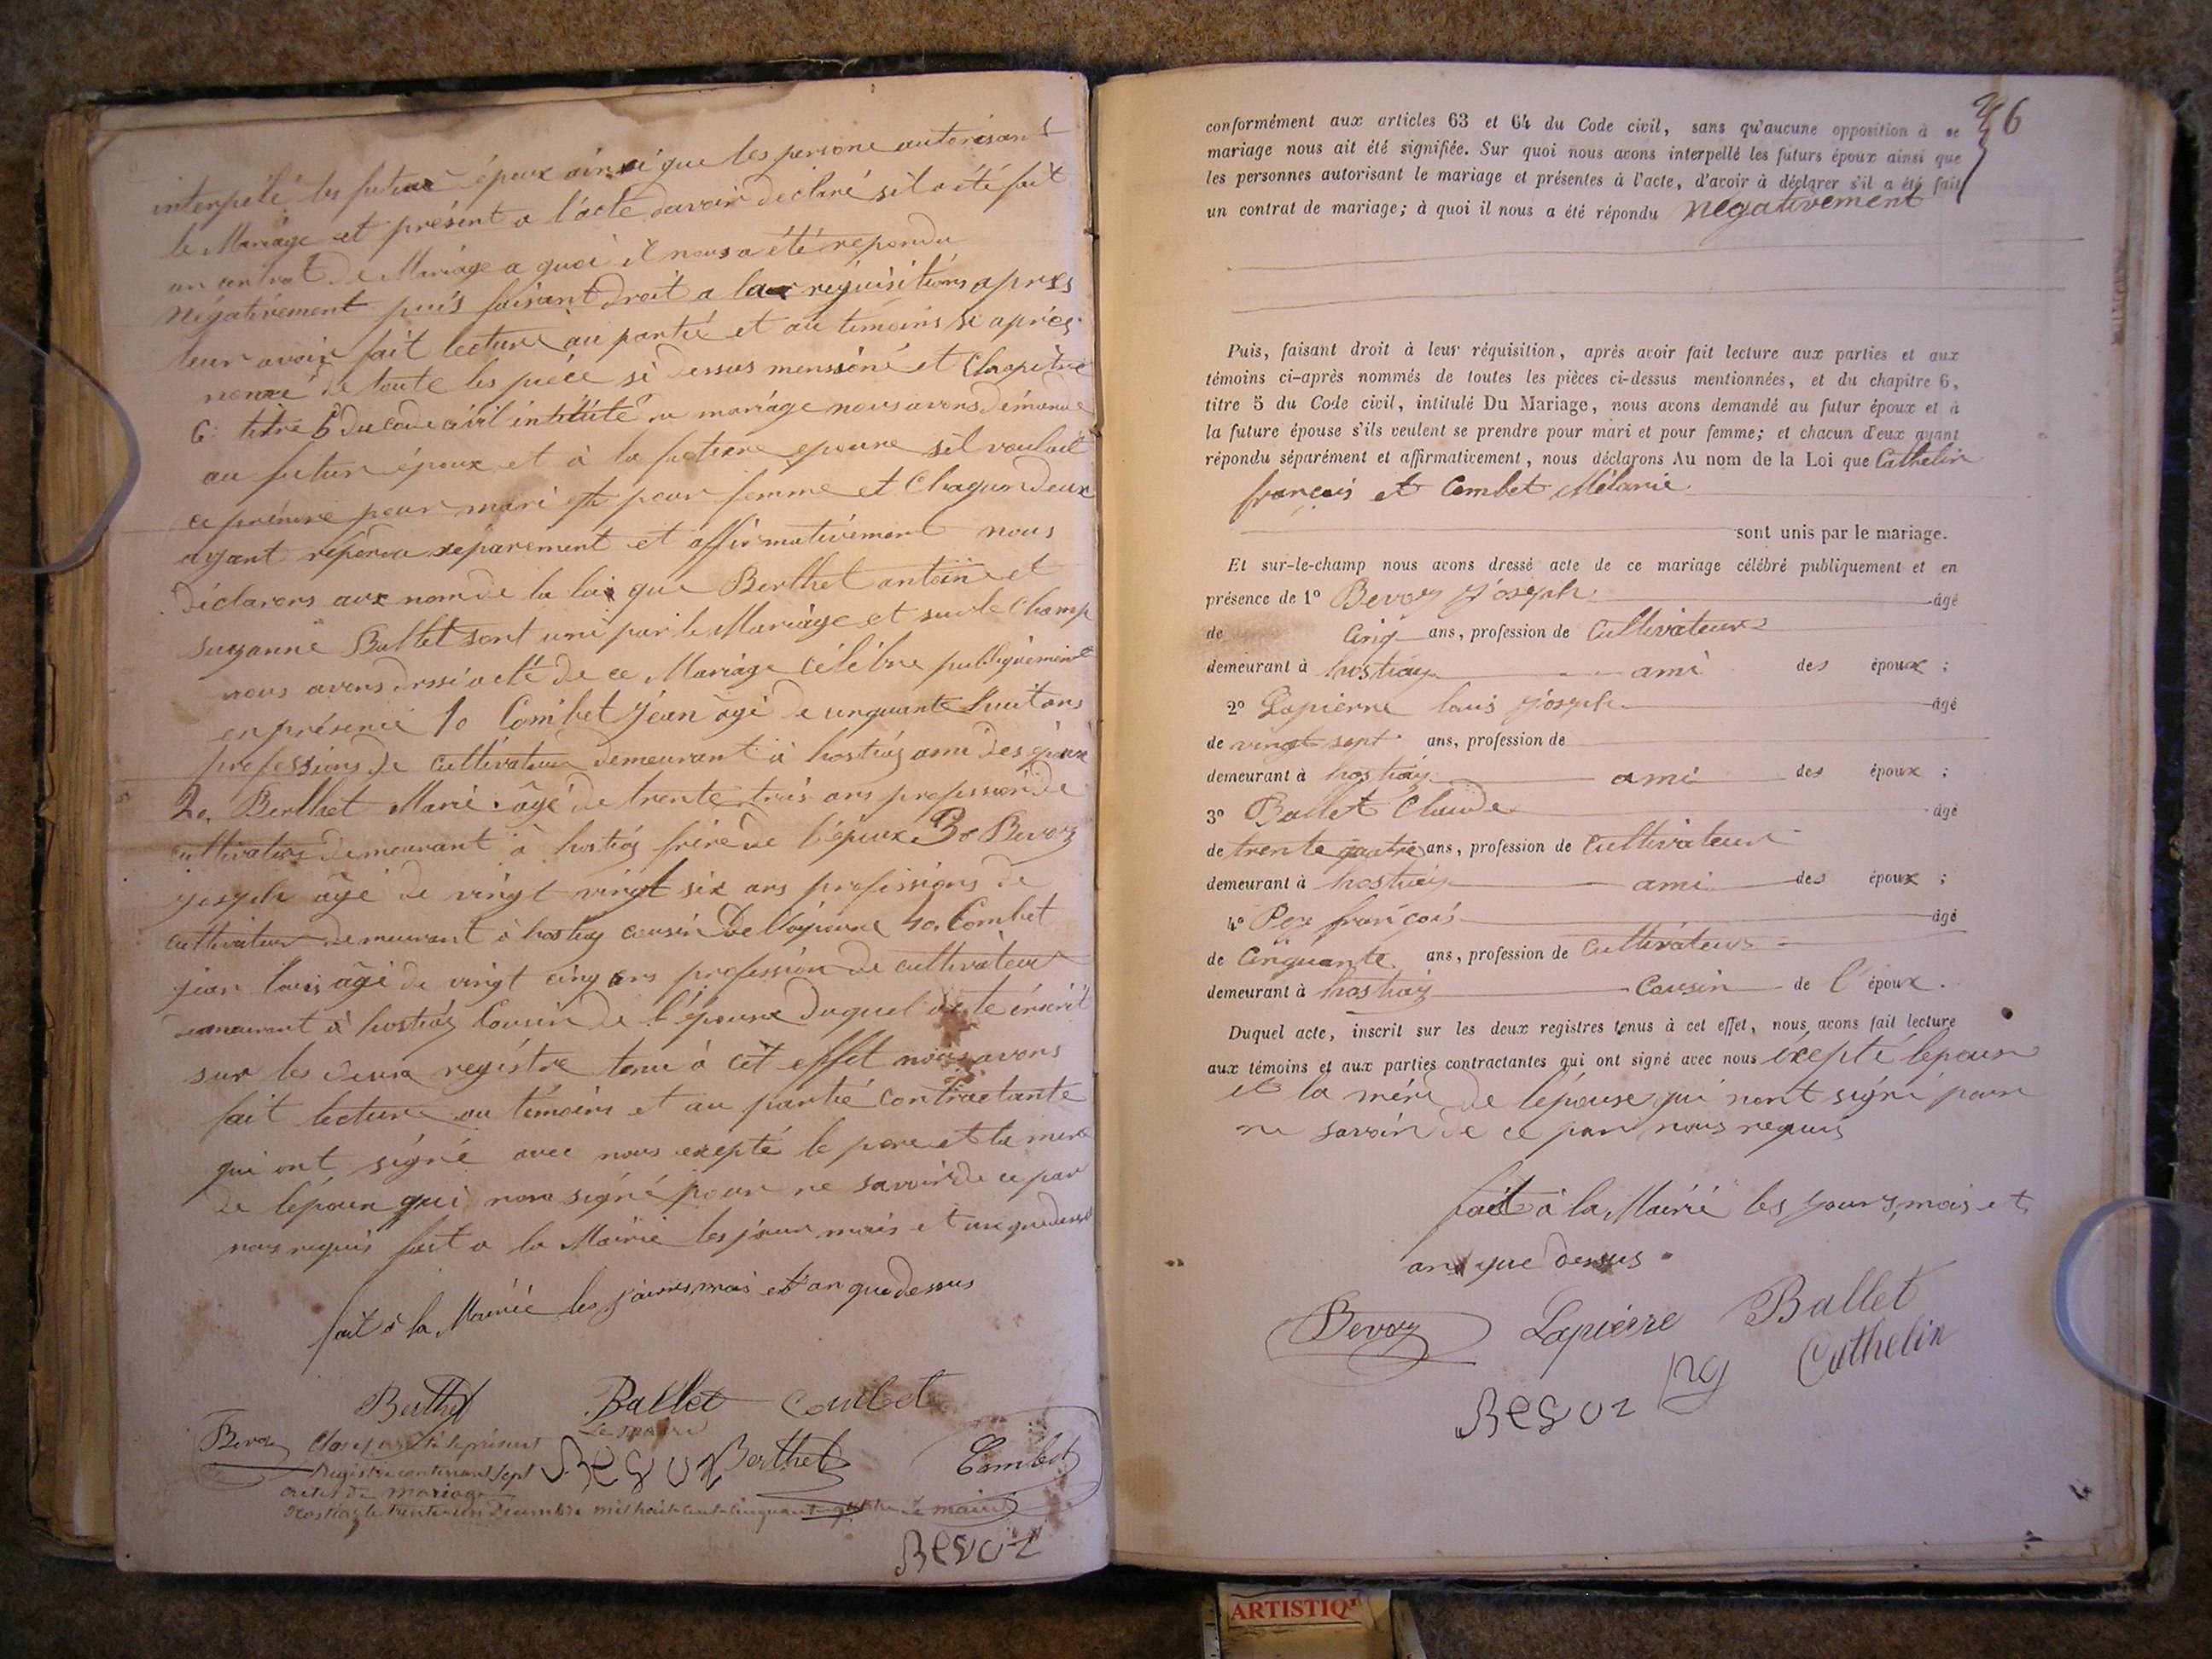 interpélé les future époux ainsi que les persone autorisant
le Mariage et présent a l'acte davoir déclaré sil a été fait
un contrat de Mariage a quoi il nous a été repondu
négativement puis faisant droit a la réquisitions apres
leur avoir fait lecture au partié et au témoins si après
nomé de toute les pièce si dessus mensioné et Chapitre
6 titre 5 du code civil intitulé du mariage nous avons démandé
au futur époux et à la future epouse sil voulait
ce prendre pour mari et pour femme et Chaqun deux
ayant repondu séparement et affirmativement nous
déclarons aux nom de la loi que Berthet antoine et
Suzanne Ballet sont uni par le Mariage et sur le Champ
nous avons dressé acte de ce Mariage célébre publiquement
en présence 1o Combet Jéan âgé de cinquante huit ans
professions de cultivateur demeurant à hostiaz ami des époux
2o Berthet Marie âgé de trente trois ans profession de
cultivateur demeurant à hostiaz frère de l'époux 3o Bevoz
joseph âgé de vingt vingt six ans professions de
cultivateur demeurant à hostiaz cousin de l'épouse 4o Combet
jean louis âgé de vingt cinq ans profession de cultivateur
demeurant à hostiaz Cousin de l'épouse Duquel acte inscrit
sur les deux registre tenu à cet effet nous avons
fait lecture au témoins et au partié contractante
qui ont signé avec nous exepté le pere et la mere
de lépoux qui nons signé pour ne savoir de ce par
nous requis fait a la Mairie les jour mois et an que dessus
fait à la Mairie les jours mois et an que dessus
Berthet Ballet Combet
Le maire
Bevoz Clos et arrêté le présent
Registre contenant sept Bevoz Berthet Combet
actes de mariage
hostiaz le trente un Decembre mil huit cent cinquante quatre Le maire
Bevoz
96
conformément aux articles 63 et 64 du Code civil, sans qu'aucune opposition à ce
mariage nous ait été signifiée. Sur quoi nous avons interpellé les futurs époux ainsi que
les personnes autorisant le mariage et présentes à l'acte, d'avoir à déclarer s'il a été fait
un contrat de mariage; à quoi il nous a été répondu négativement
Puis, faisant droit à leur réquisition, après avoir fait lecture aux parties et aux
témoins ci-après nommés de toutes les pièces ci-dessus mentionnées, et du chapitre 6,
titre 5 du Code civil, intitulé Du Mariage, nous avons demandé au futur époux et à
la future épouse s'ils veulent se prendre pour mari et pour femme; et chacun d'eux ayant
répondu séparément et affirmativement, nous déclarons Au nom de la Loi que Cathelin
françois et Combet Mélanie
sont unis par le mariage.
Et sur-le-champ nous avons dressé acte de ce mariage célébré publiquement et en
présence de 1º Bevoz Joseph âgé
de Cinq ans, profession de Cultivateur
demeurant à hostiaz ami des époux ;
2º Lapierre louis joseph âgé
de vingt sept ans, profession de
demeurant à hostiaz ami des époux ;
3º Ballet Claude âgé
de trente quatre ans, profession de Cultivateur
demeurant à hostiaz ami des époux ;
4º Pey françois âgé
de Cinquante ans, profession de Cultivateur
demeurant à hostiaz Cousin de l'époux.
Duquel acte, inscrit sur les deux registres tenus à cet effet, nous avons fait lecture
aux témoins et aux parties contractantes qui ont signé avec nous éxepté lepouse
et la mére de lépouse qui nont signé pour
ne savoir de ce par nous requis
fait à la Mairie les Jours, mois et
an que dessus
Bevoz Lapierre Ballet
Cathelin
Bevoz
ARTISTIQ